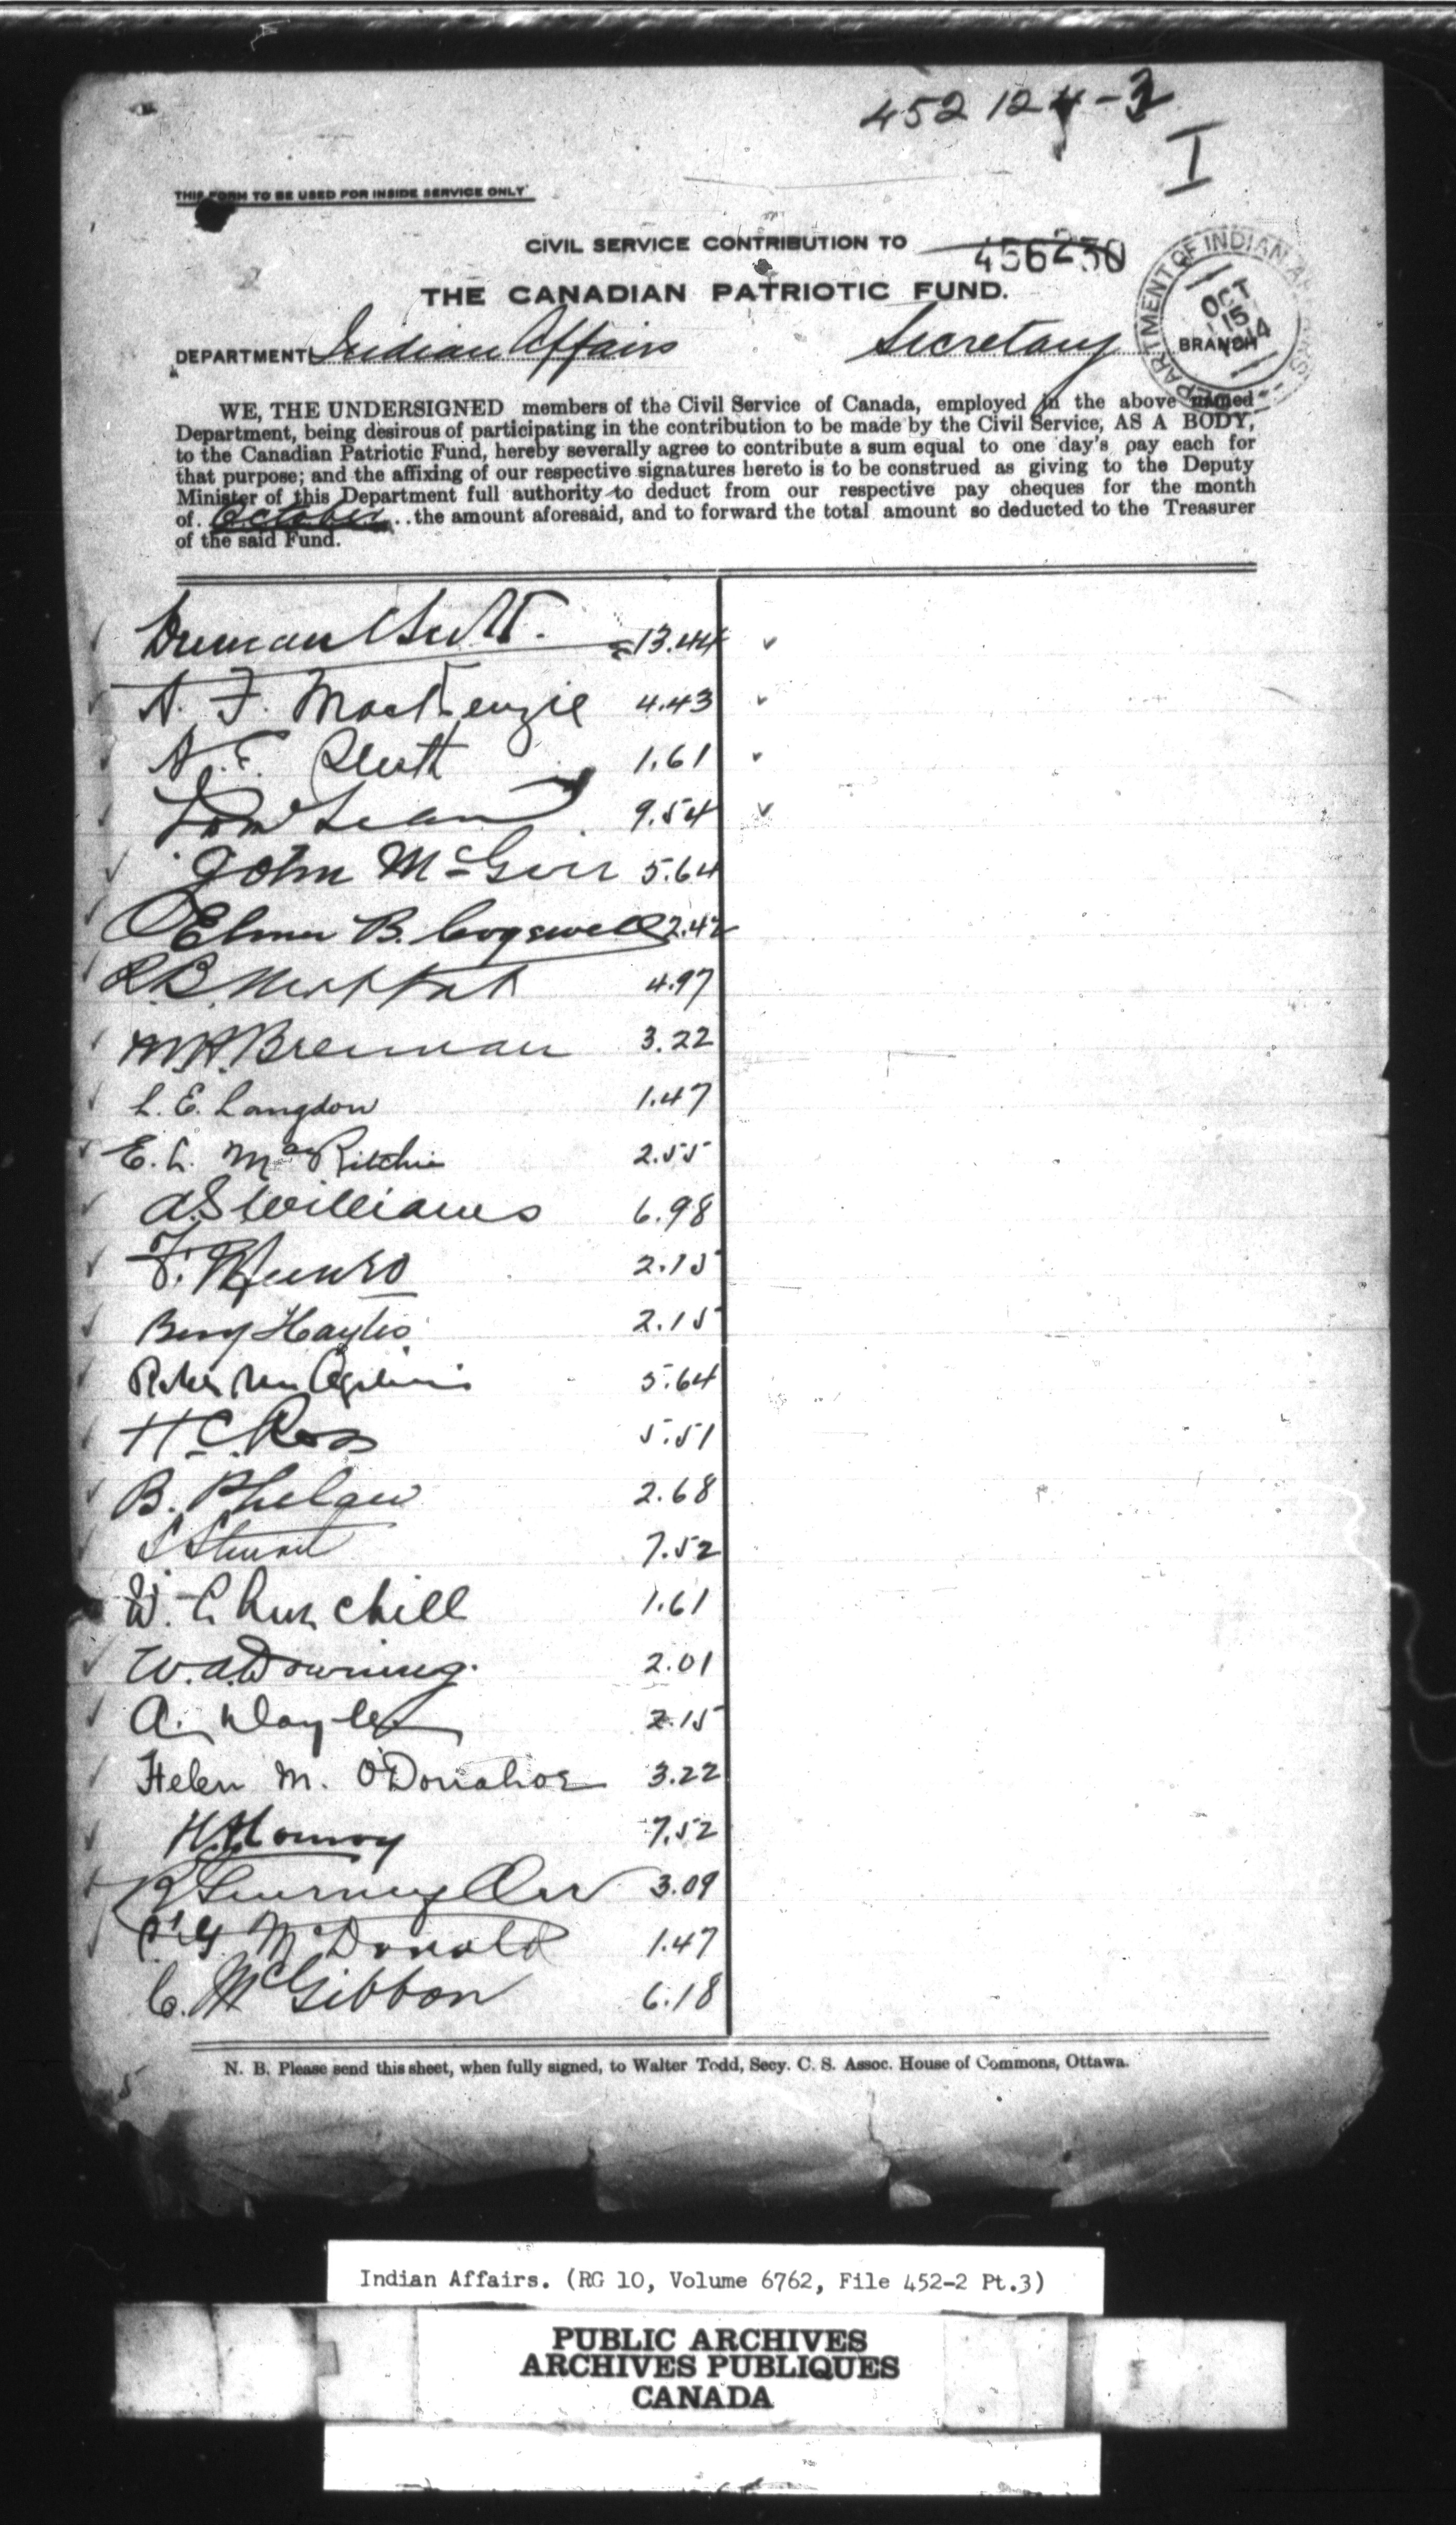 452 124-3
I
THIS FORM TO BE USED FOR INSIDE SERVICE ONLY
CIVIL SERVICE CONTRIBUTION TO
456230
THE CANADIAN PATRIOTIC FUND.
DEPARTMENT Indian Affairs Secretary
DEPARTMENT OF INDIAN
OCT 15 1914
BRANCH
WE, THE UNDERSIGNED members of the Civil Service of Canada, employed in the above named
Department, being desirous of participating in the contribution to be made by the Civil Service, AS A BODY,
to the Canadian Patriotic Fund, hereby severally agree to contribute a sum equal to one day's pay each for
that purpose; and the affixing of our respective signatures hereto is to be construed as giving to the Deputy
Minister of this Department full authority to deduct from our respective pay cheques for the month
of October the amount aforesaid, and to forward the total amount so deducted to the Treasurer
of the said Fund.
Duncan C Scott. 13.44
A. F. MacKenzie 4.43
1.61
9.54
John McGirr 5.64
Elmer B. Cogswell 2.42
L.B. Moffat 4.97
Brennan 3.22
L. E. Langdon 1.47
E. L. MacRitchie 2.55
A.S. Williams 6.98
F. Munro 2.15
Benj Hayter 2.15
Ogilvie 5.64
H C. Ross 5.51
B. Phelan 2.68
S Stewart 7.52
W. Churchill 1.61
W.A. Downing. 2.01
A. 2.15
Helen M. O'Donahoe 3.22
H. Conroy 7.52
Orr 3.09
McDonald 1.47
C. McGibbon 6.18
N. B. Please send this sheet, when fully signed, to Walter Todd, Secy. C. S. Assoc. House of Commons, Ottawa.
Indian Affairs. (RG 10, Volume 6762, File 452-2 Pt.3)
PUBLIC ARCHIVES
ARCHIVES PUBLIQUES
CANADA